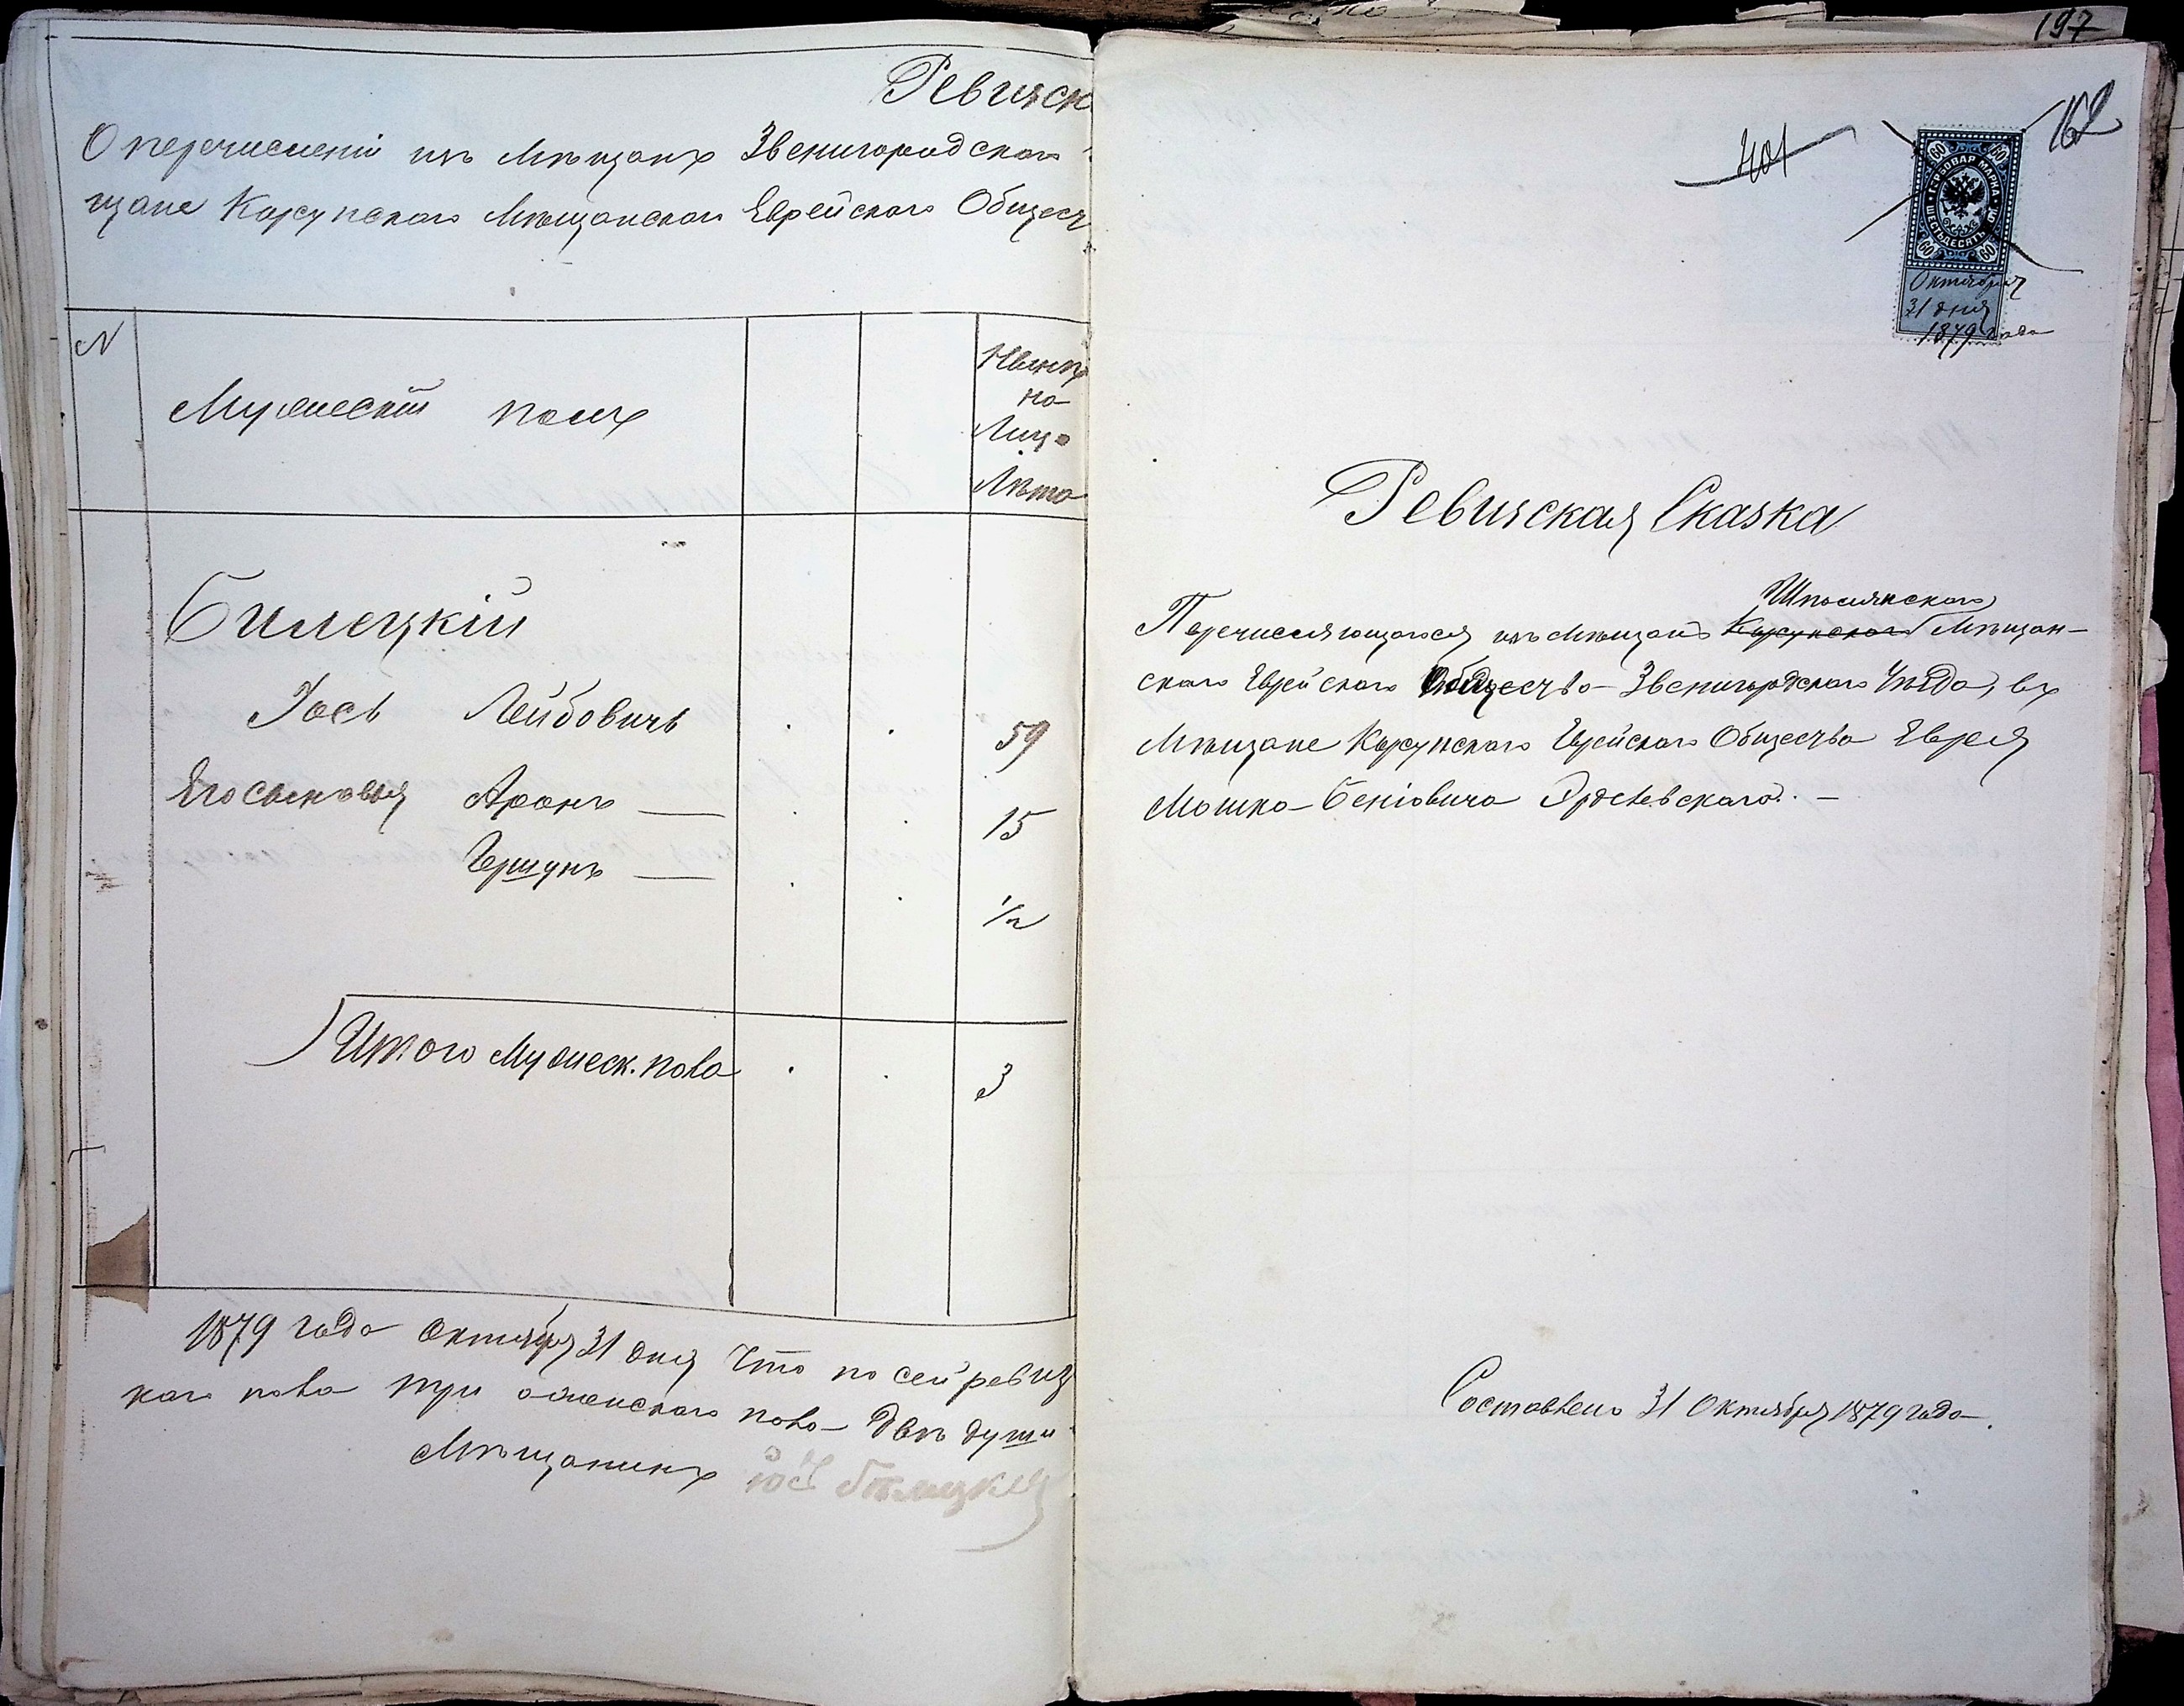 Ревизск
О перечислении изъ Мѣщанъ Звенигородскаго
щане Корсунскаго Мѣщанскаго Еврейскаго Общест
N
Мужескій полъ
Нынѣ
на
Лицо
Лѣта
Билецкій
Іось Лейбовичъ 59
Его сыновья Аронъ — 15
Гершунъ — 1/2
Итого Мужеск. пола 3
1879 года Октября 31 дня Что по сей ревиз
каго пола три а женскаго пола двѣ души
Мѣщанинъ Іось Билецкій
197
162
401
60 60
ГЕРБОВАЯ МАРКА
ШЕСТЬДЕСЯТЪ КО.
60 60
Октября
31 дня
1879 года
Ревизская Сказка
Шполянскаго
Перечисляющагося изъ Мѣщанъ Корсунскаго Мѣщан-
скаго Еврейскаго Общества Звенигородскаго Уѣзда, въ
Мѣщане Корсунскаго Еврейскаго Общества Еврея
Мошка Беніовича
Составлено 31 Октября 1879 года.